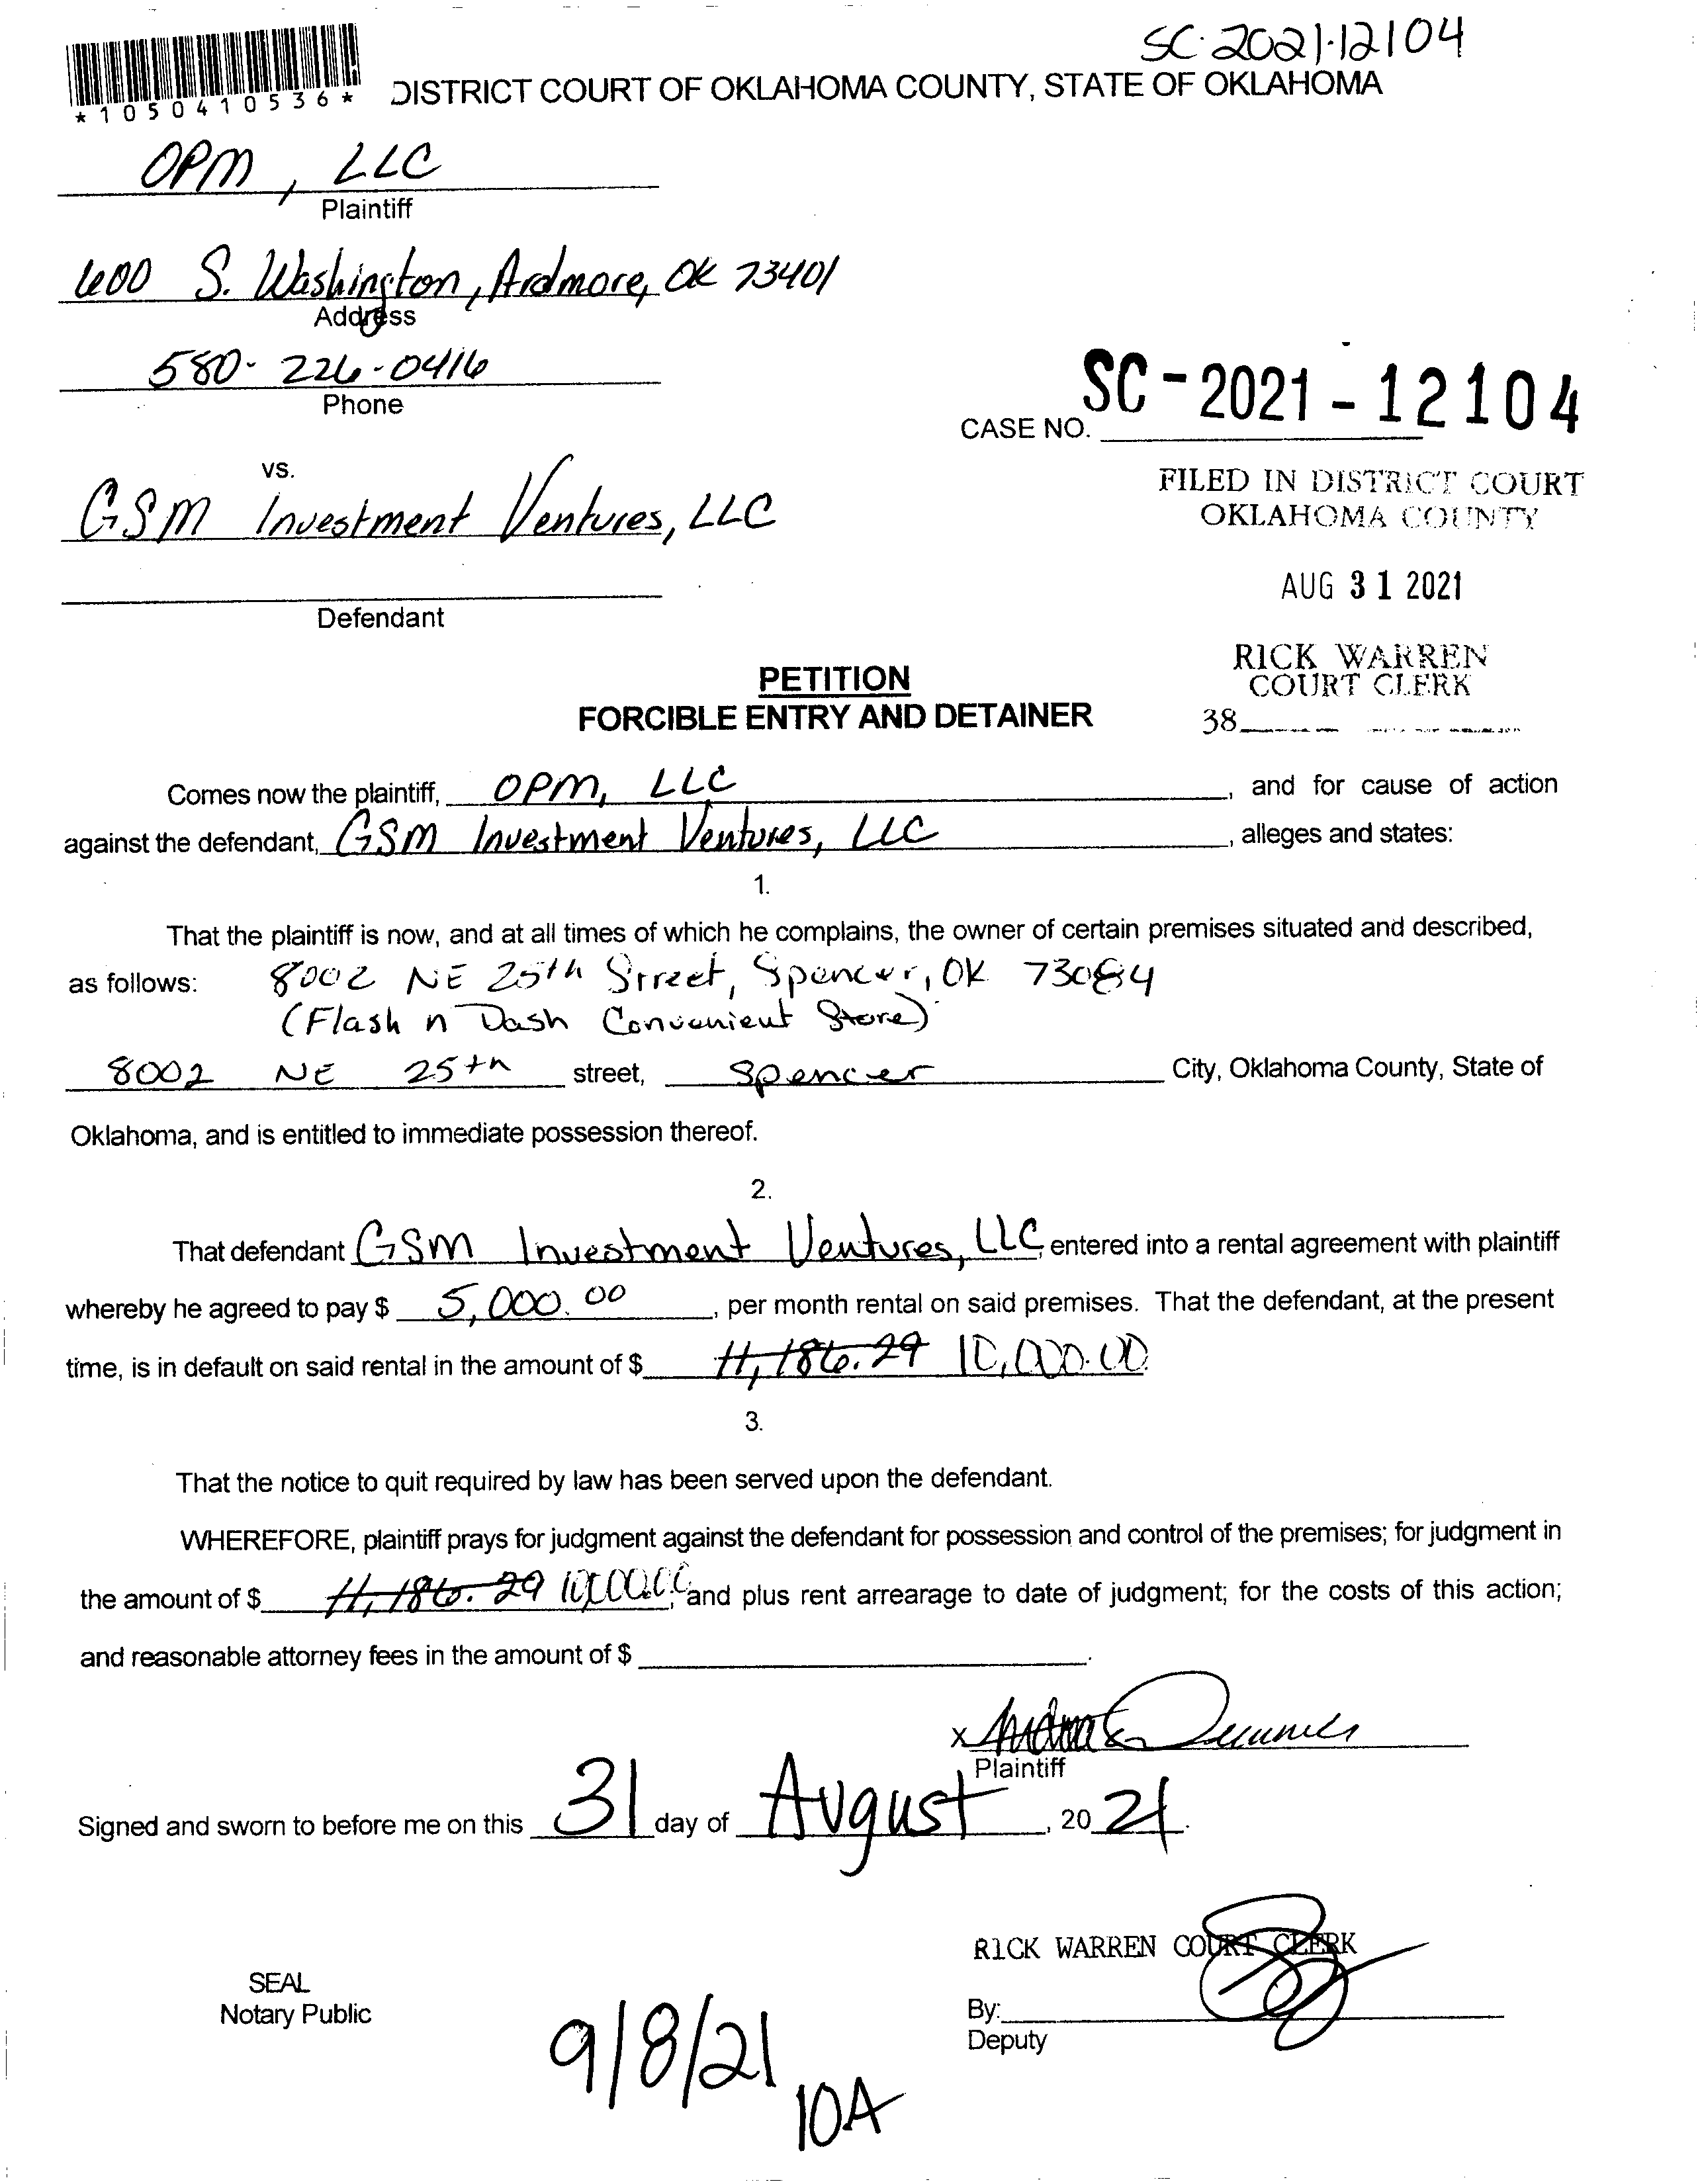 SC-2021-12104
*1050410536*
DISTRICT COURT OF OKLAHOMA COUNTY, STATE OF OKLAHOMA
OPM, LLC
Plaintiff
600 S. Washington, Ardmore, OK 73401
Address
580-226-0416
Phone
CASE NO. SC-2021-12104
vs.
GSM Investment Ventures, LLC
FILED IN DISTRICT COURT
OKLAHOMA COUNTY
AUG 31 2021
Defendant
RICK WARREN
COURT CLERK
38
PETITION
FORCIBLE ENTRY AND DETAINER
Comes now the plaintiff, OPM, LLC, and for cause of action
against the defendant, GSM Investment Ventures, LLC, alleges and states:
1.
That the plaintiff is now, and at all times of which he complains, the owner of certain premises situated and described,
as follows: 8002 NE 25th Street, Spencer, OK 73084
(Flash n Dash Convenient Store)
8002 NE 25th street, Spencer City, Oklahoma County, State of
Oklahoma, and is entitled to immediate possession thereof.
2.
That defendant GSM Investment Ventures, LLC, entered into a rental agreement with plaintiff
whereby he agreed to pay $ 5,000.00, per month rental on said premises. That the defendant, at the present
time, is in default on said rental in the amount of $ 11,186.29 10,000.00
3.
That the notice to quit required by law has been served upon the defendant.
WHEREFORE, plaintiff prays for judgment against the defendant for possession and control of the premises; for judgment in
the amount of $ 11,186.29 10,000.00, and plus rent arrearage to date of judgment; for the costs of this action;
and reasonable attorney fees in the amount of $ .
x
Plaintiff
Signed and sworn to before me on this 31 day of August, 2021.
RICK WARREN COURT CLERK
SEAL
Notary Public
By:
Deputy
9/8/21
10A